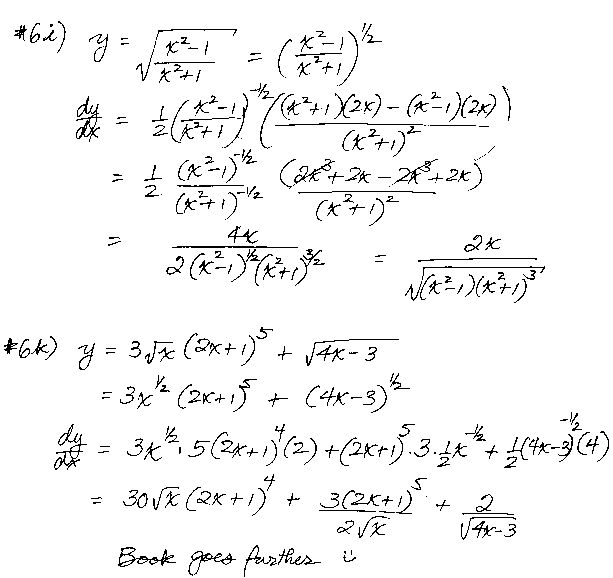 #6i) y = √((x²-1)/(x²+1)) = ((x²-1)/(x²+1))^½
dy/dx = 1/2 ((x²-1)/(x²+1))^-½ (((x²+1)(2x) - (x²-1)(2x))/(x²+1)²)
= 1/2 (x²-1)^-½/(x²+1)^-½ (2x³+2x-2x³+2x)/(x²+1)²
= 4x/(2(x²-1)^½(x²+1)^3/2) = 2x/√((x²-1)(x²+1)³)
#6k) y = 3√x (2x+1)⁵ + √(4x-3)
= 3x^½ (2x+1)⁵ + (4x-3)^½
dy/dx = 3x^½ · 5(2x+1)⁴(2) + (2x+1)⁵ · 3 · 1/2 x^-½ + 1/2 (4x-3)^-½ (4)
= 30√x (2x+1)⁴ + 3(2x+1)⁵/(2√x) + 2/√(4x-3)
Book goes further